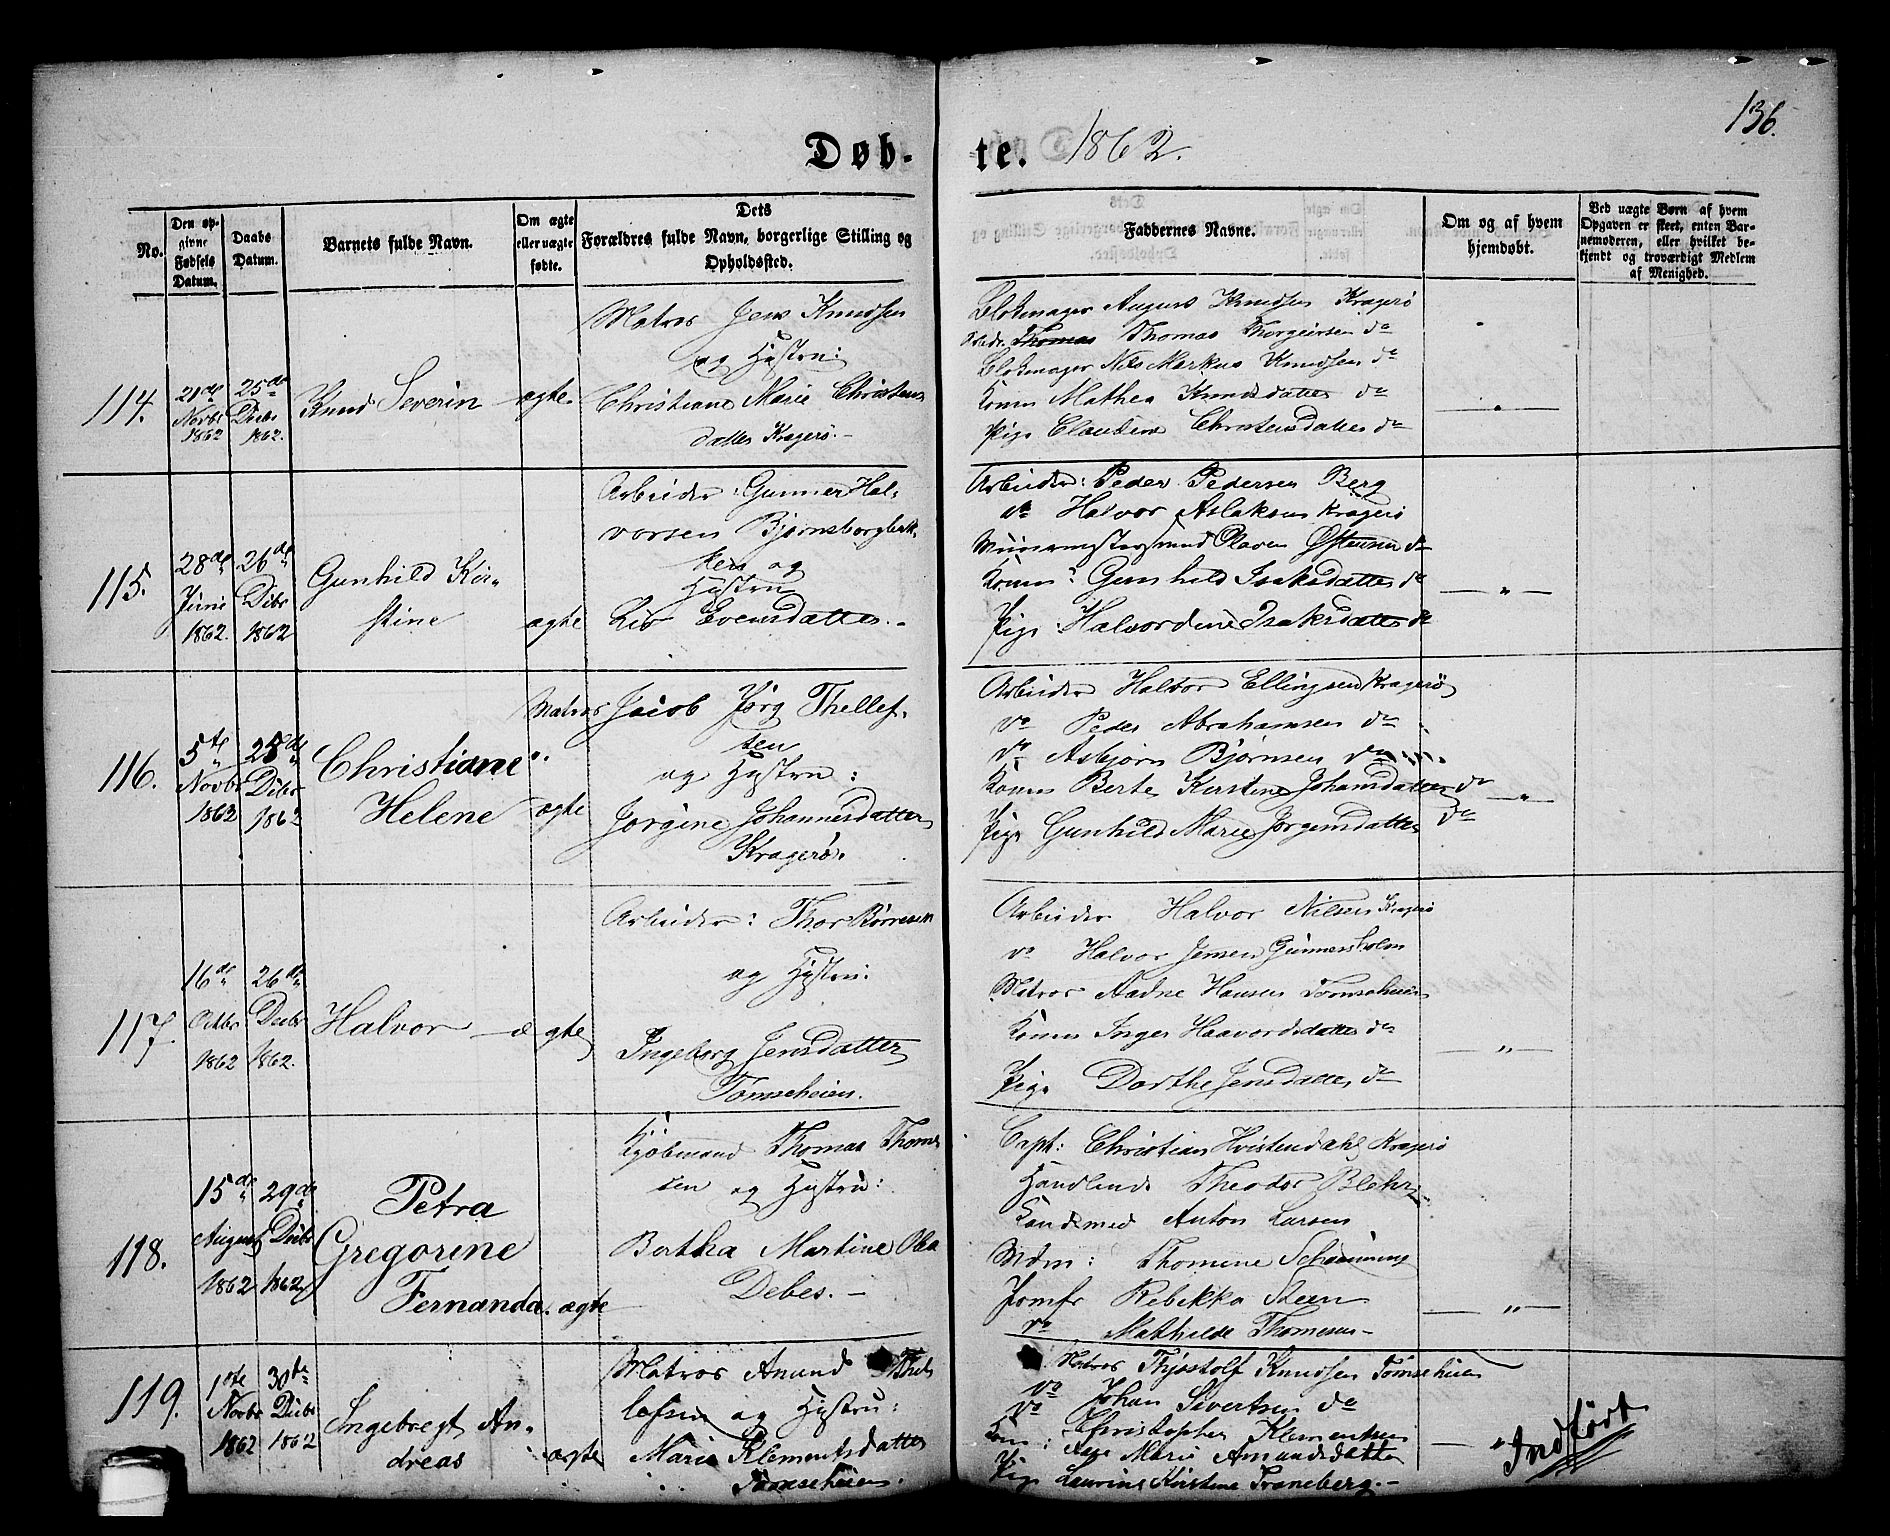 136.
Døb- te. 1862.
No.
Den op-
givne
Fødsels
Datum.
Daabs
Datum.
Barnets fulde Navn.
Om ægte
eller uægte
fødte.
Dets
Forældres fulde Navn, borgerlige Stilling og
Opholdssted.
Faddernes Navne.
Om og af hvem
hjemdøbt.
Ved uægte Børn af hvem
Opgaven er skeet, enten Bar-
nemoderen, eller hvilket be-
kjendt og troværdigt Medlem
af Menighed.
114.
21de
Novbr
1862
25de
Decbr
1862.
Knud Severin
ægte
Matros Jens Knudsen
og Hustru:
Christiane Marie Christens
datter Kragerø.
Blokmager August Knudsen Kragerø
Thomas Thomas Thorgeirsen do
Blokmager Nils Markus Knudsen do
Konen Mathea Knudsdatter do
Pige Claudine Christensdatter do
115.
28de
Juni
1862.
26de
Decbr
1862
Gunhild Kir-
stine
ægte
Arbeider: Gunner Hal-
vorsen Bjørnsborgbak-
ken og
Hustru
Liv Evensdatter.
Arbeider: Peder Pedersen Berg
do Halvor Aslaksen Kragerø
Muurmestersvend Olaves Østensen do
Konen: Gunhild Isaksdatter do
Pige: Halvordine Isaksdatter do
116.
5te
Novbr
1862
28de
Decbr
1862
Christiane
Helene
ægte
Matros Jacob Jørg Thellef-
sen
og Hustru:
Jørgine Johannesdatter
Kragerø.
Arbeider Halvor Ellingsen Kragerø
do Peder Abrahamsen do
do Asbjørn Bjørnsen do
Konen Berte Kirstine Johansdatter do
Pige Gunhild Marie Jørgensdatter do
117.
16de
Octbr
1862
26de
Decbr
1862.
Halvor
ægte
Arbeider: Thor Børresen
og Hustru:
Ingeborg Jensdatter
Tomseheien.
Arbeider Halvor Nilsen Kragerø
do Halvor Jensen Gunnersholm
Matros Aadne Hansen Tomseheien
Konen Inger Haavordsdatter do
Pige Dorthe Jensdatter do
118.
15de
August
1862
29de
Decbr
1862
Petra
Gregorine
Fernanda.
ægte
Kjøbmand Thomas Thome
sen og Hustru:
Bertha Martine Olea
Debes.
Capt: Christian Hvistendahl Kragerø
Handlende Theodor Blehr
Anton Larsen
Mdm: Thomine Schanning
Jomfr Rebekka Steen
do Mathilde Thomesen
119.
1ste
Novbr
1862
30te
Decbr
1862
Ingebregt An-
dreas
ægte
Matros Amund Thel
lefsen og Hustru:
Marie Klementsdatter
Tomseheien.
Matros Thjostolf Knudsen Tomseheien
do Johan Sivertsen do
do Christopher Klementsen
Kone: Aase Marie Amundsdatter
Pige Laurine Kirstine Traneberg.
Indført